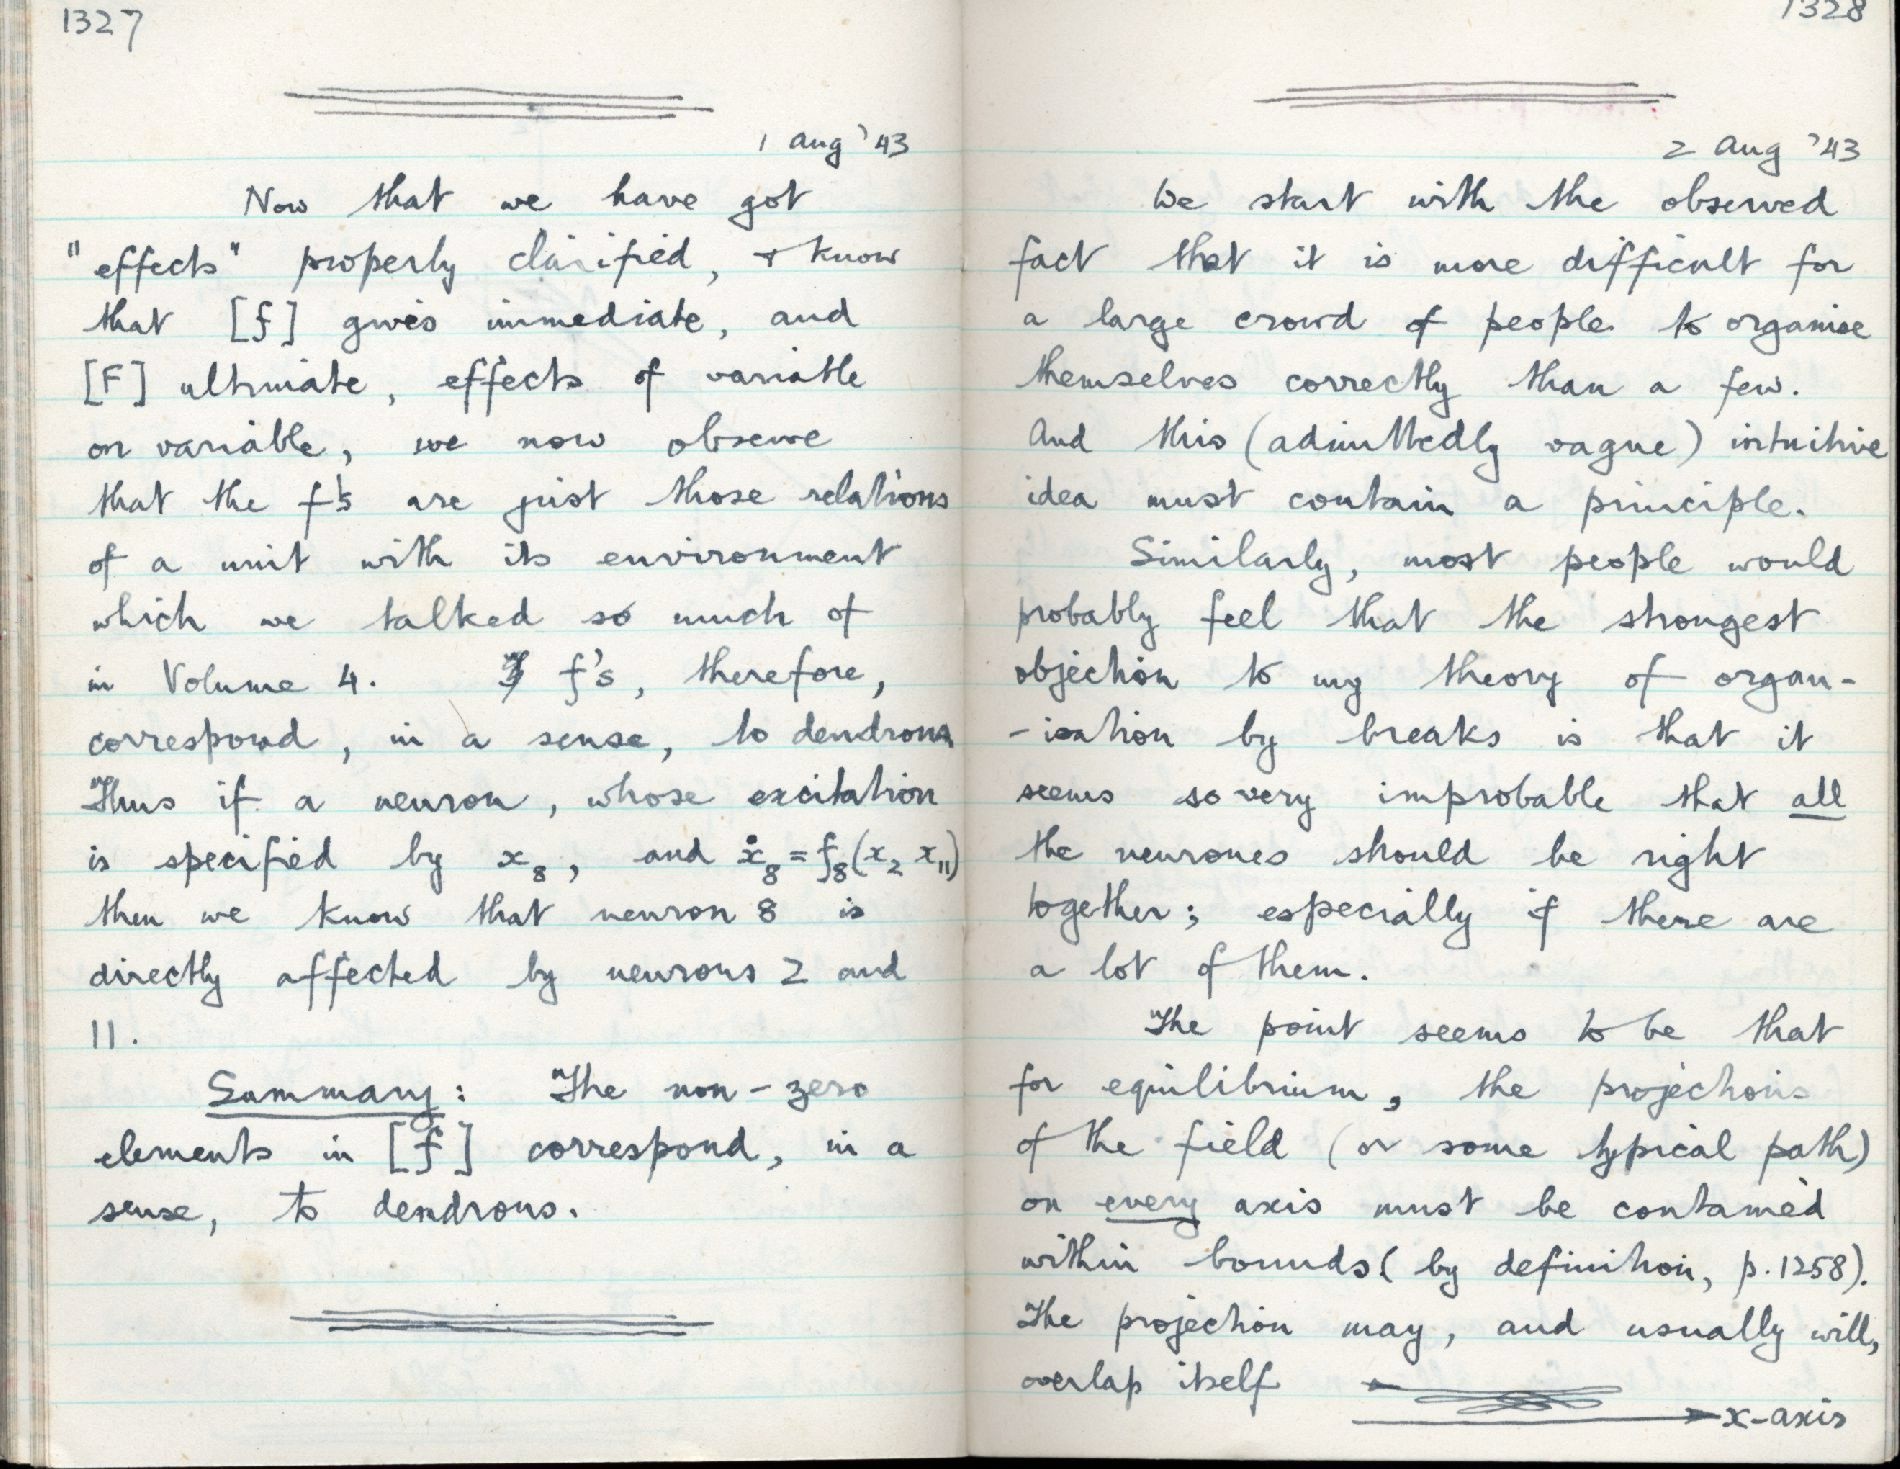 1327
1 Aug '43
Now that we have got
"effects" properly clarified, + know
that [f] gives immediate, and
[F] ultimate, effects of variable
on variable, we now observe
that the f's are just those relations
of a unit with its environment
which we talked so much of
in Volume 4. f's, therefore,
correspond, in a sense, to dendrons
Thus if a neuron, whose excitation
is specified by x₈, and ẋ₈ = f₈(x₂ x₁₁)
then we know that neuron 8 is
directly affected by neurons 2 and
11.
Summary: The non-zero
elements in [f] correspond, in a
sense, to dendrons.
1328
2 Aug '43
We start with the observed
fact that it is more difficult for
a large crowd of people to organise
themselves correctly than a few.
And this (admittedly vague) intuitive
idea must contain a principle.
Similarly, most people would
probably feel that the strongest
objection to my theory of organ-
-isation by breaks is that it
seems so very improbable that all
the neurones should be right
together; especially if there are
a lot of them.
The point seems to be that
for equilibrium, the projections
of the field (or some typical path)
on every axis must be contained
within bounds (by definition, p. 1258).
The projection may, and usually will,
overlap itself
x-axis